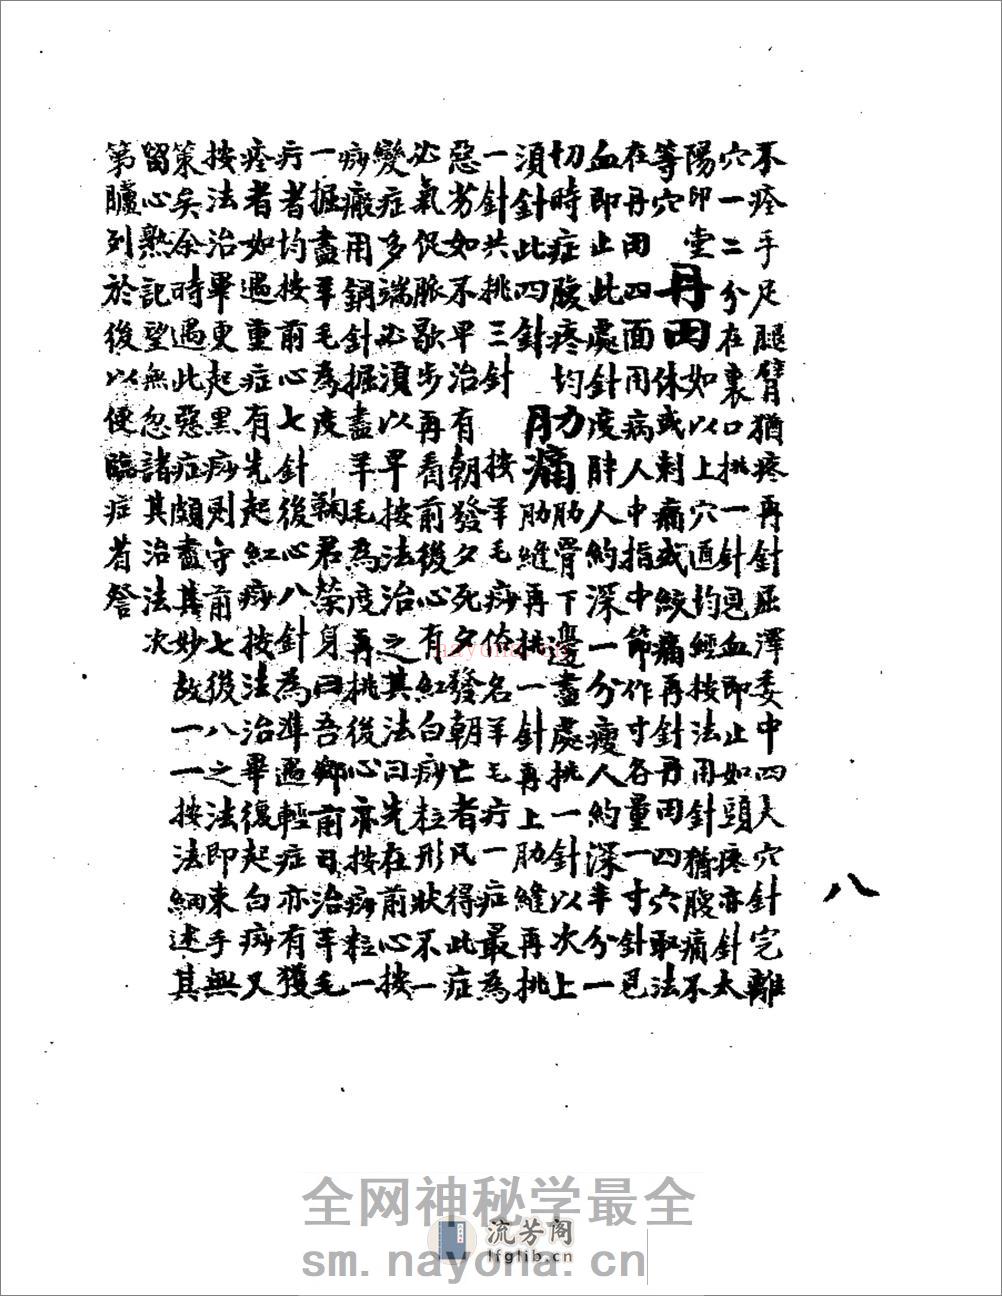 八
不痊手足腿臂猶疼再針屈澤委中四大穴針完離
穴一二分在裏口挑一針見血即止如頭疼亦針太
陽印堂
等穴
丹田
如以上穴道均經按法用針猶腹痛不
休或刺痛或絞痛再針丹田四穴取法
在丹田四面用病人中指中節作寸各量一寸針見
血即止此處針度胖人約深一分瘦人約深半分一
切時症腹疼均
須針此四針
肋痛
肋骨下邊盡處挑一針以次上
肋縫再挑一針再上肋縫再挑
一針共挑三針 按羊毛痧俗名羊毛疔一症最為
惡劣如不早治有朝發夕死夕發朝亡者凡得此症
必氣促脈歇步再看前後心有紅白痧粒形狀不一
變症多端必須以早按法治之其法曰先在前心按
痧瘢用鋼針掘盡羊毛為度再挑後心亦按痧粒一
一掘盡羊毛為度 鞠君榮身曰吾鄉前日治羊毛
疔者均按前心七針後心八針為準遇輕症亦有獲
痊者如遇重症有先起紅痧按法治畢復起白痧又
按法治畢更起黑痧則守前七後八之法即束手無
策矣余時遇此惡症頗盡其妙故一一按法細述其
留心熟記望無忽諸其治法次
第臚列於後以便臨症者詧
nayona.cn
全网神秘学最全
流芳阁
lfglib.cn
sm.nayona.cn